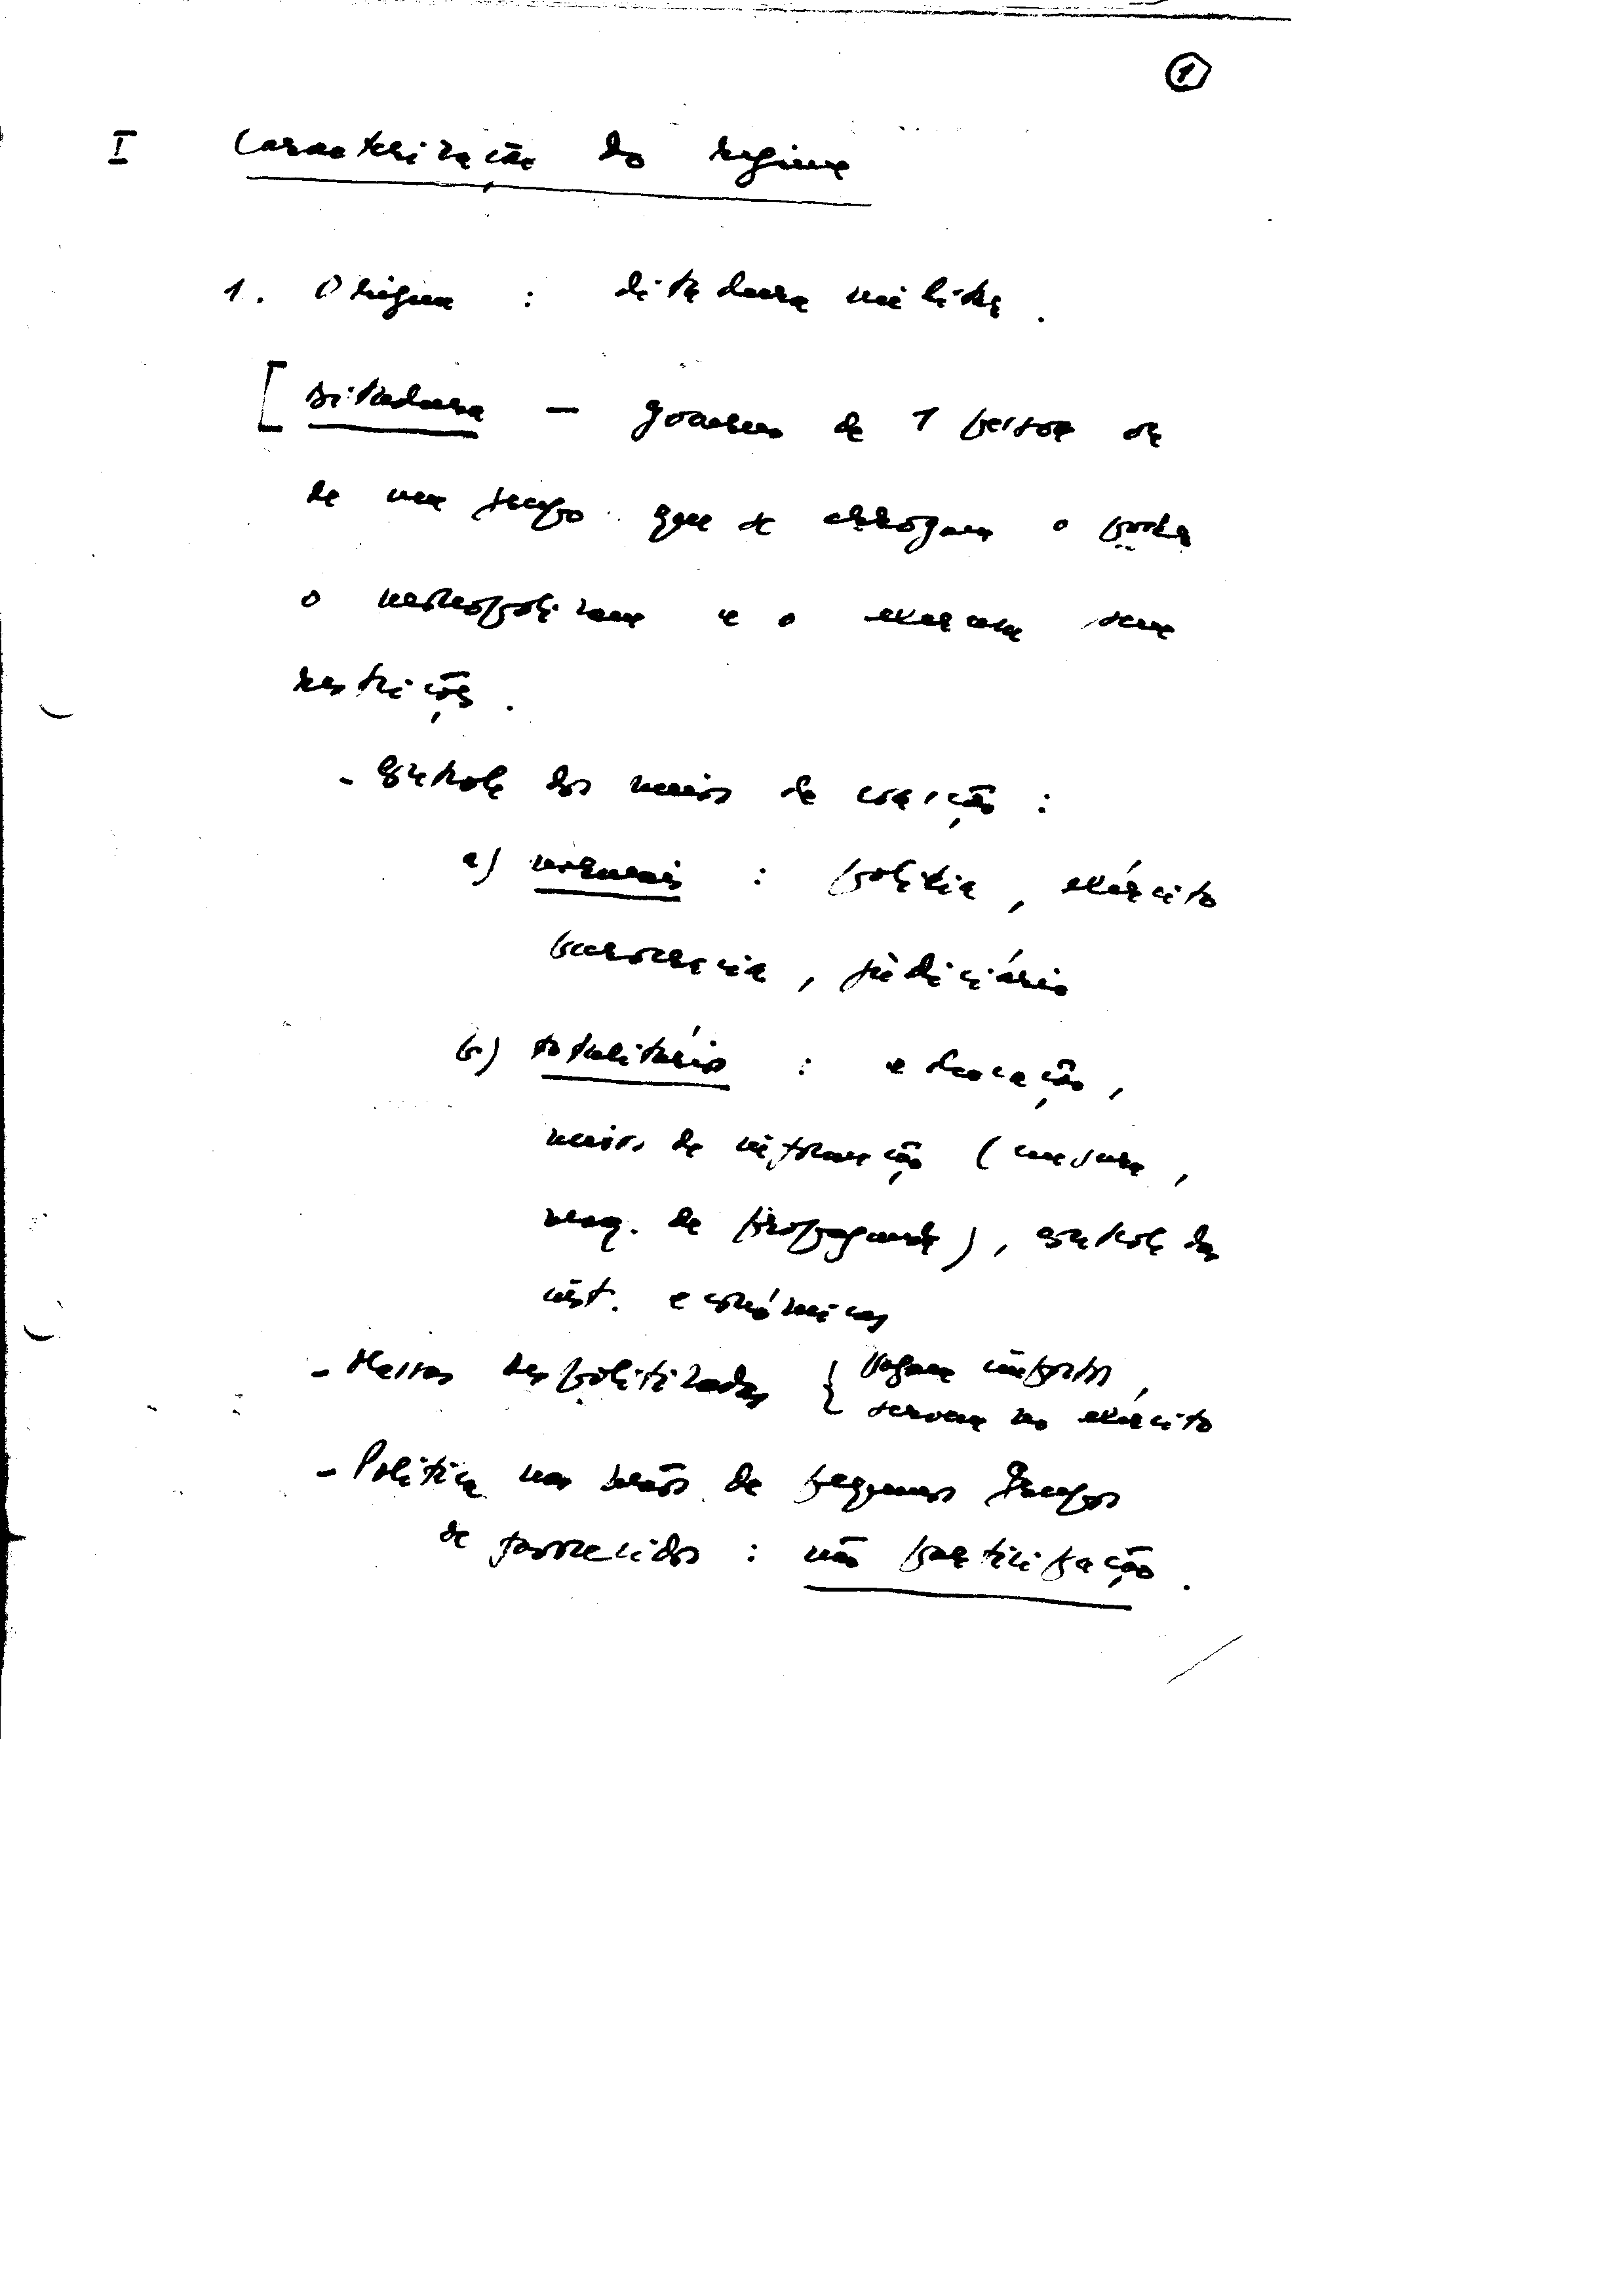 1
I Caracterização do regime
1. Origem : ditadura militar.
[ Ditadura — governo de 1 pessoa ou
de um grupo que se arrogam o poder
o monopolizam e o exercem sem
restrições.
- Controle dos meios de coerção :
a) normais : polícia, exército
burocracia, judiciário
b) totalitários : educação,
meios de informação (censura,
maq. de propaganda), controle das
inst. econômicas
- Massas despolitizadas { Pagam impostos,
servem no exército
- Política nas mãos de pequenos grupos
de favorecidos : não participação.